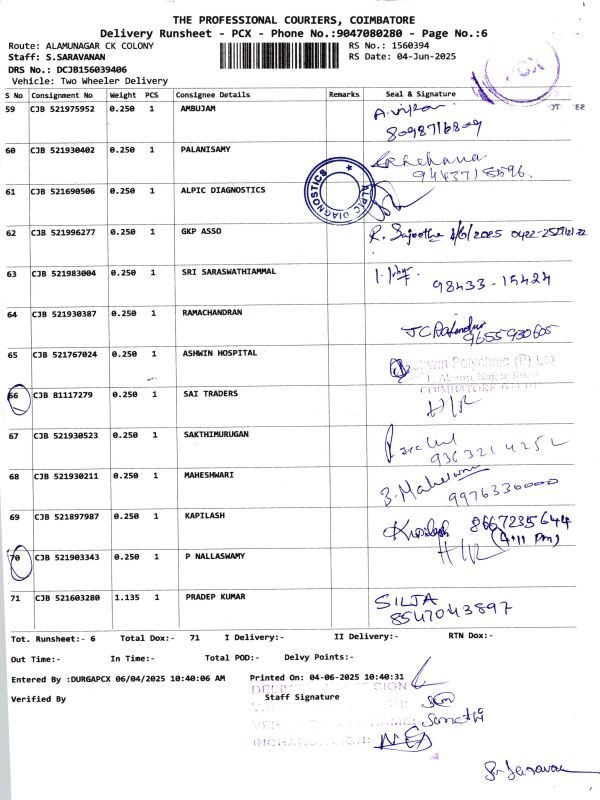 THE PROFESSIONAL COURIERS, COIMBATORE
Delivery Runsheet - PCX - Phone No.:9047080280 - Page No.:6
Route: ALAMUNAGAR CK COLONY RS No.: 1560394
Staff: S.SARAVANAN RS Date: 04-Jun-2025
DRS No.: DCJB156039406
Vehicle: Two Wheeler Delivery
PCX
S No Consignment No Weight PCS Consignee Details Remarks Seal & Signature
59 CJB 521975952 0.250 1 AMBUJAM
8098716809
60 CJB 521930402 0.250 1 PALANISAMY
9443718596.
61 CJB 521690506 0.250 1 ALPIC DIAGNOSTICS ALPIC DIAGNOSTICS
62 CJB 521996277 0.250 1 GKP ASSO
63 CJB 521983004 0.250 1 SRI SARASWATHIAMMAL
98433-15424
64 CJB 521930387 0.250 1 RAMACHANDRAN
9655930605
65 CJB 521767024 0.250 1 ASHWIN HOSPITAL Polyclinic (P) Ltd
66 CJB 81117279 0.250 1 SAI TRADERS
H/R
67 CJB 521930523 0.250 1 SAKTHIMURUGAN
68 CJB 521930211 0.250 1 MAHESHWARI
9976330000
69 CJB 521897987 0.250 1 KAPILASH 8667235644
(4:11 Pm)
70 CJB 521903343 0.250 1 P NALLASWAMY H/R
71 CJB 521603280 1.135 1 PRADEP KUMAR
SILJA
8547043897
Tot. Runsheet:- 6 Total Dox:- 71 I Delivery:- II Delivery:- RTN Dox:-
Out Time:- In Time:- Total POD:- Delvy Points:-
Entered By :DURGAPCX 06/04/2025 10:40:06 AM Printed On: 04-06-2025 10:40:31
Verified By Staff Signature